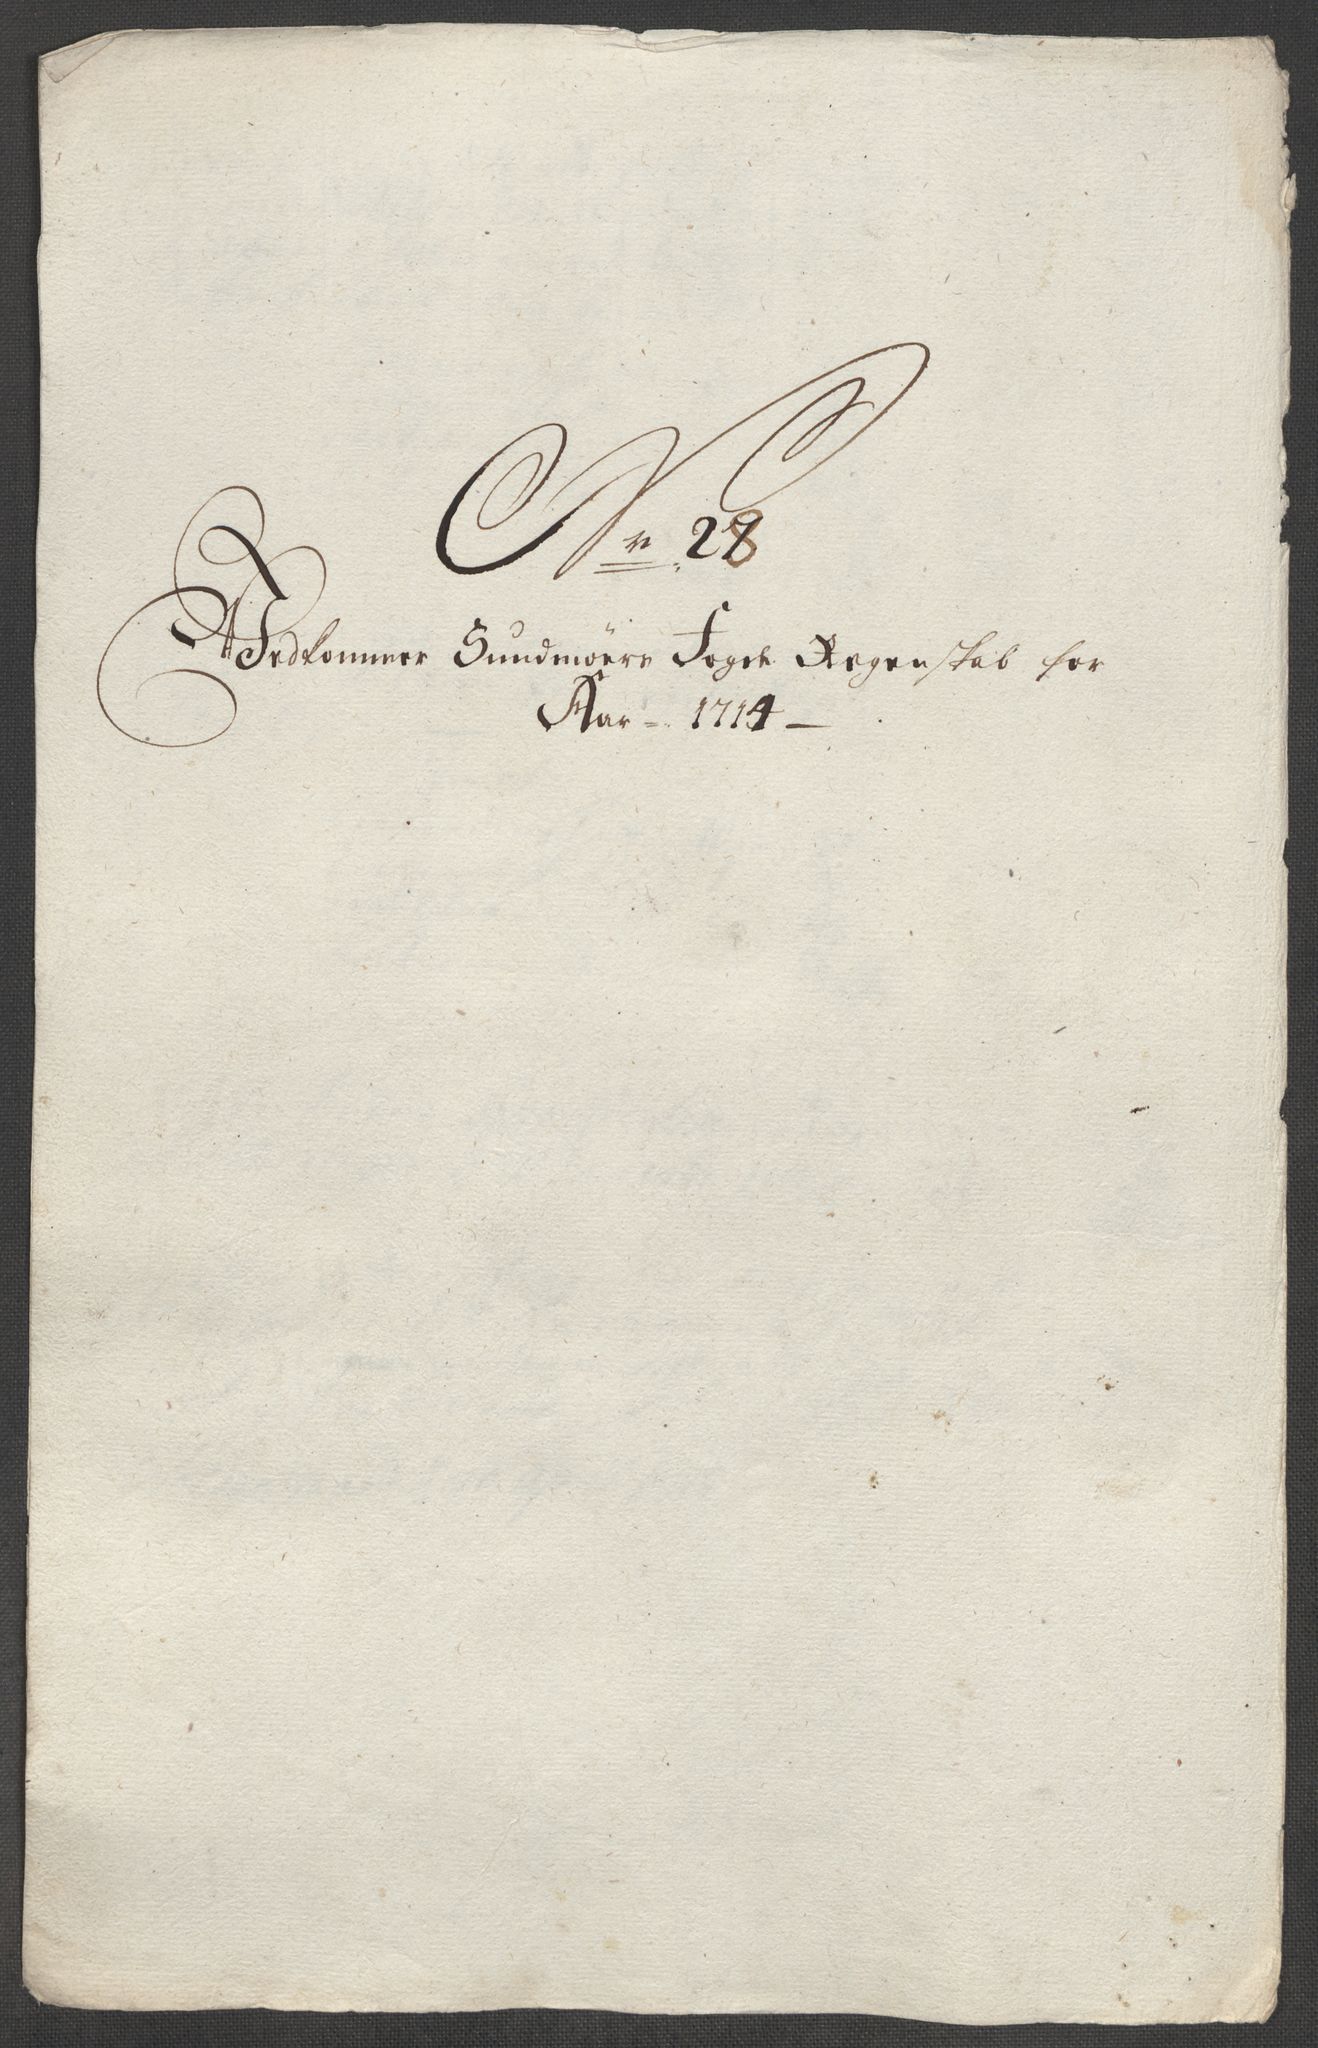 Nr 28
Vedkommer Sundmøers Fogde Regenskab for
Aar 1714